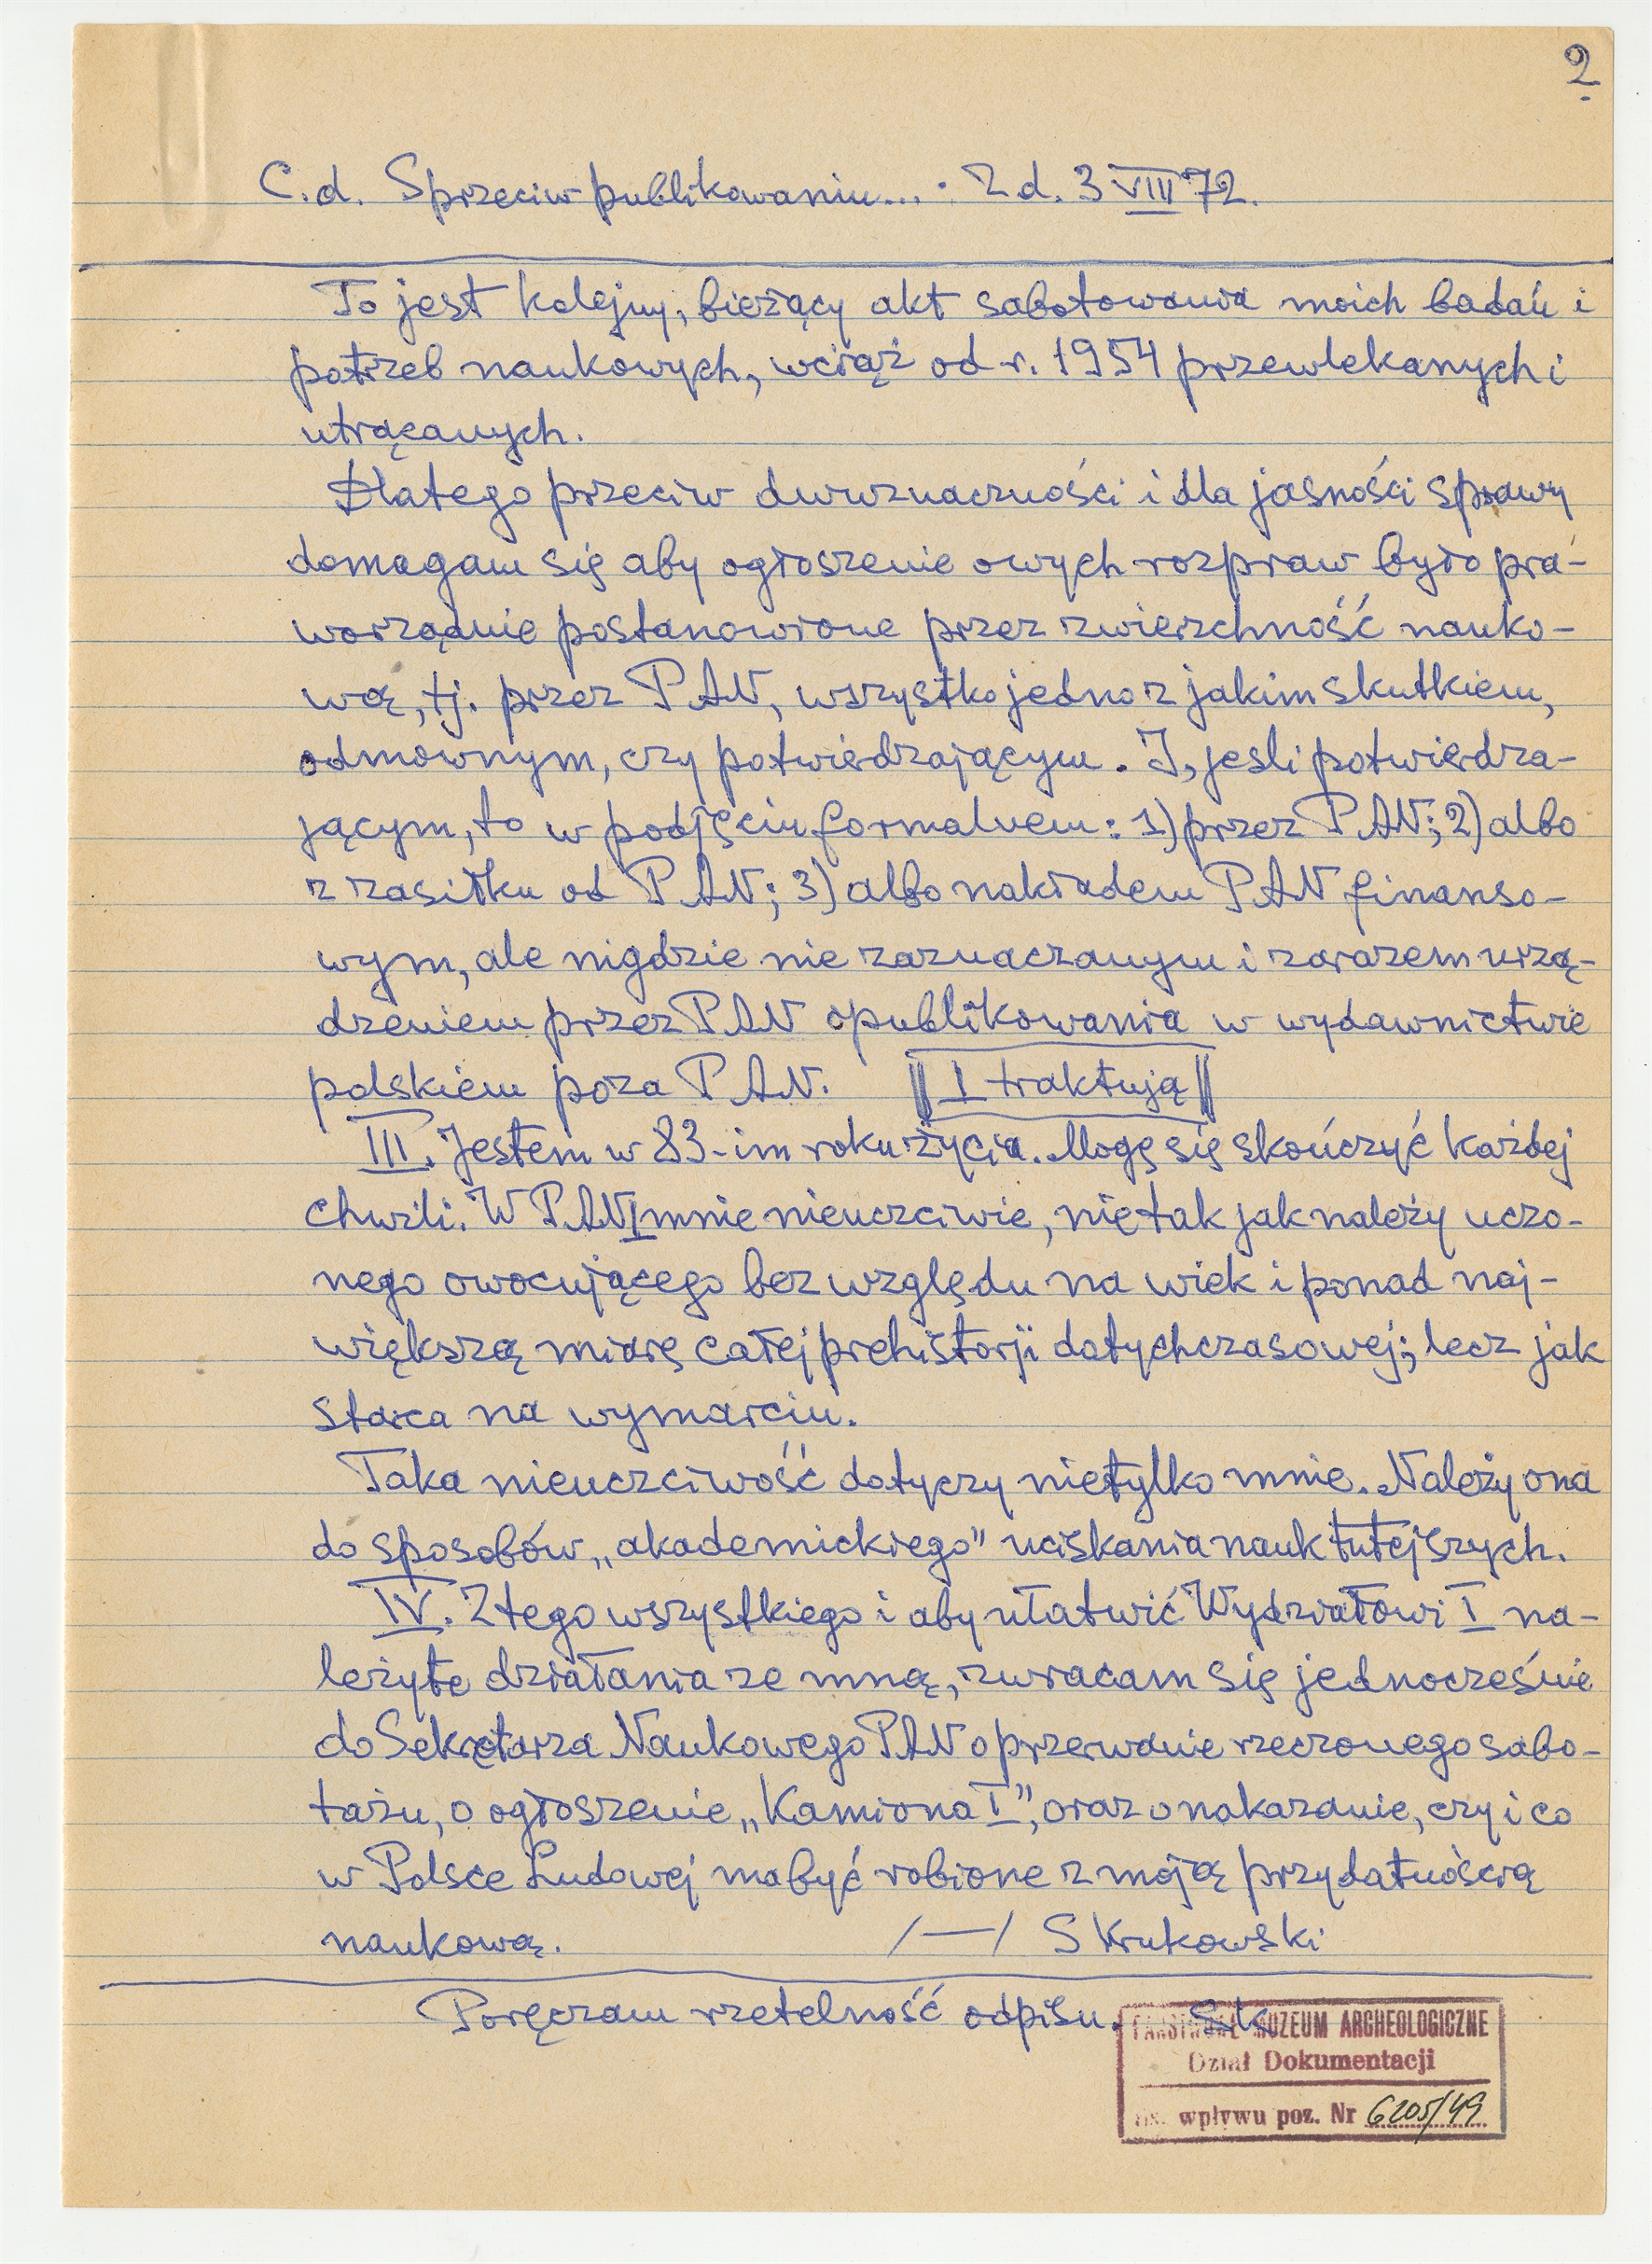 2
C.d. Sprzeciw publikowaniu... : Z d. 3 VIII 72.
To jest kolejny, bieżący akt sabotowania moich badań i
potrzeb naukowych, wciąż od r. 1954 przewlekanych i
utrącanych.
Dlatego przeciw dwuznaczności i dla jasności sprawy
domagam się aby ogłoszenie owych rozpraw było pra-
worządnie postanowione przez zwierzchność nauko-
wą, tj. przez PAN, wszystko jedno z jakim skutkiem,
odmownym, czy potwierdzającym. I, jesli potwierdza-
jącym, to w podjęciu formalnem: 1) przez PAN; 2) albo
z zasiłku od PAN; 3) albo nakładem PAN finanso-
wym, ale nigdzie nie zaznaczanym i zarazem urzą-
dzeniem przez PAN opublikowania w wydawnictwie
polskiem poza PAN. || I traktują ||
III. Jestem w 83-im roku życia. Mogę się skończyć każdej
chwili. W PAN I mnie nieuczciwie, nie tak jak należy uczo-
nego owocującego bez względu na wiek i ponad naj-
większą miarę całej prehistorji dotychczasowej; lecz jak
starca na wymarciu.
Taka nieuczciwość dotyczy nietylko mnie. Należy ona
do sposobów „akademickiego" uciskania nauk tutejszych.
IV. Z tego wszystkiego i aby ułatwić Wydziałowi I na-
leżyte działania ze mną, zwracam się jednocześnie
do Sekretarza Naukowego PAN o przerwanie rzeczonego sabo-
tażu, o ogłoszenie „Kamiona I", oraz o nakazanie, czy i co
w Polsce Ludowej ma być robione z moją przydatnością
naukową. /—/ S Krukowski
Poręczam rzetelność odpisu. SK
PAŃSTWOWE MUZEUM ARCHEOLOGICZNE
Dział Dokumentacji
wpływu poz. Nr 6205/49